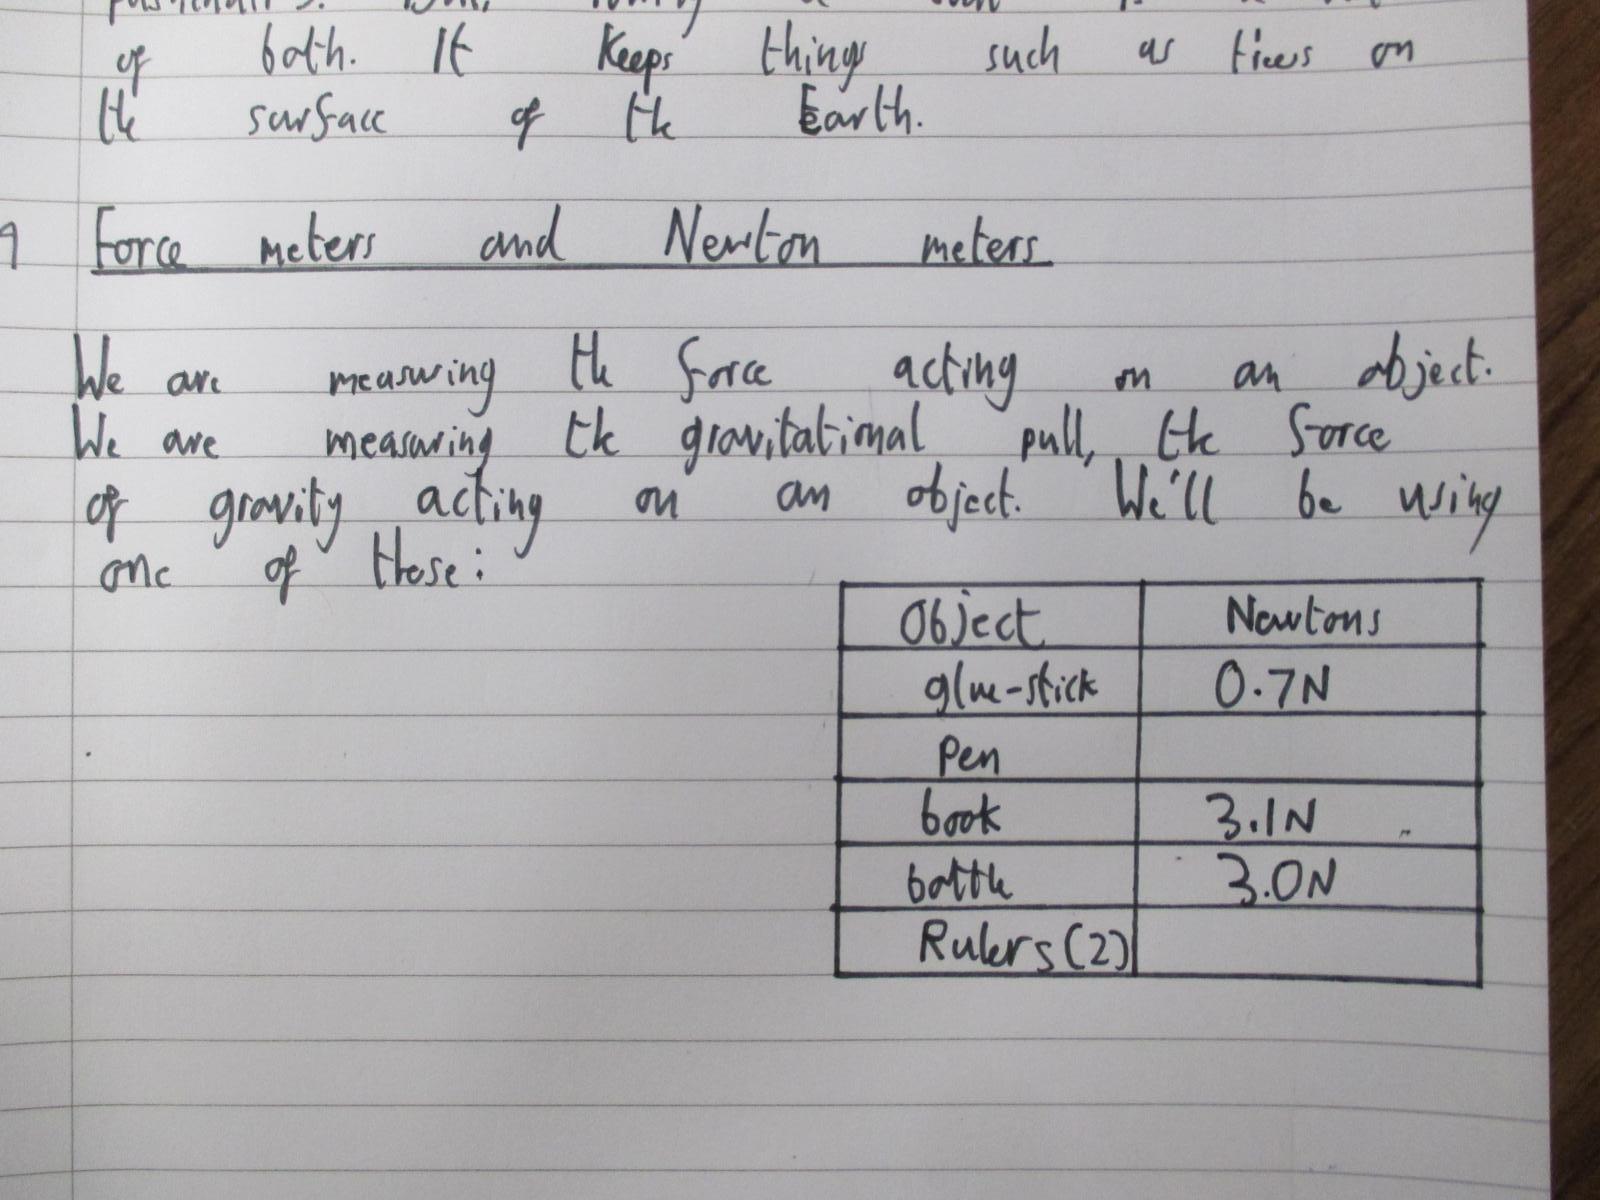 of both. It keeps things such as trees on
the surface of the Earth.
Force meters and Newton meters
We are measuring the force acting on an object.
We are measuring the gravitational pull, the force
of gravity acting on an object. We'll be using
one of these:
Object Newtons
glue-stick 0.7N
Pen
book 3.1N
bottle 3.0N
Rulers (2)